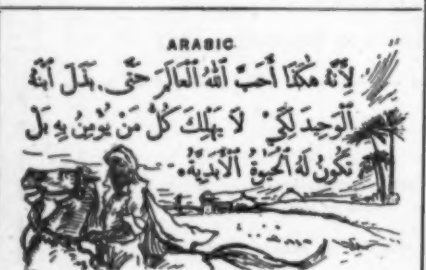 ARABIC
لِأَنَّهُ هٰكَذَا أَحَبَّ ٱللّٰهُ ٱلْعَالَمَ حَتَّى بَذَلَ ٱبْنَهُ
ٱلْوَحِيدَ لِكَيْ لَا يَهْلِكَ كُلُّ مَنْ يُؤْمِنُ بِهِ بَلْ
تَكُونُ لَهُ ٱلْحَيٰوةُ ٱلْأَبَدِيَّةُ.